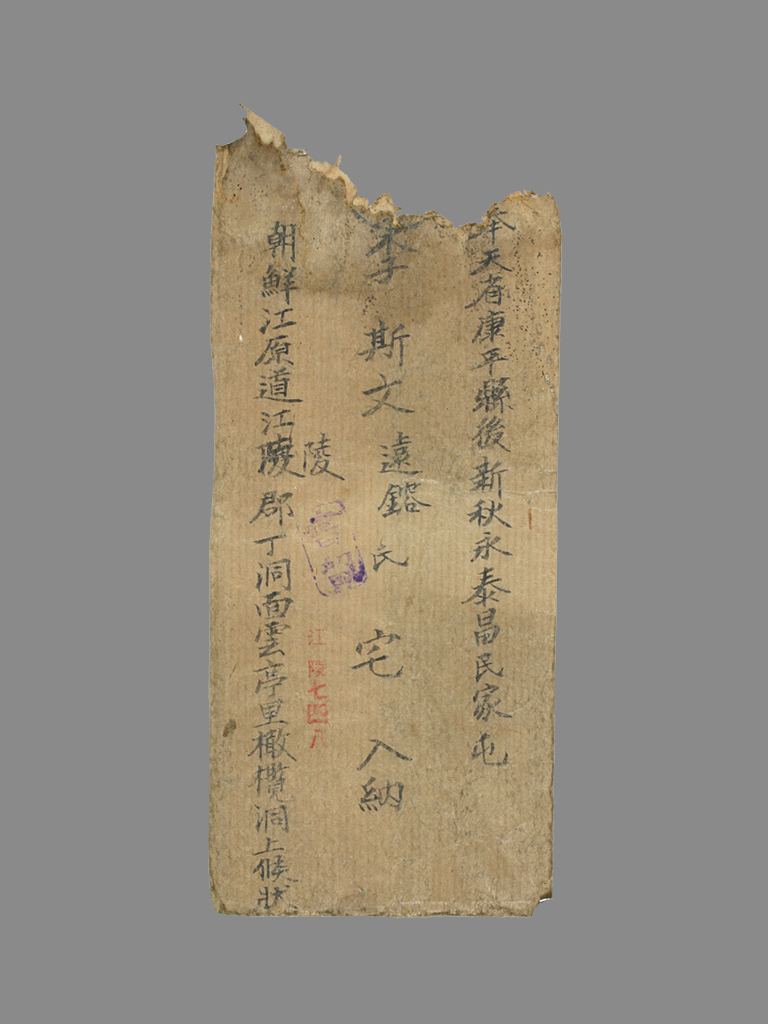 奉天省康平縣後新秋永泰昌民家屯
李斯文遠鎔氏宅入納
陵
江陵七四八
朝鮮江原道江陵郡丁洞面雲亭里橄欖洞上候狀